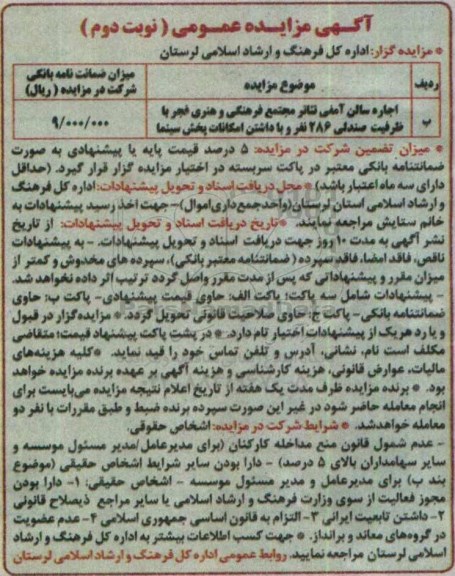 آگهی مزایده عمومی ( نوبت دوم )
* مزایده گزار: اداره کل فرهنگ و ارشاد اسلامی لرستان
ردیف موضوع مزایده میزان ضمانت نامه بانکی شرکت در مزایده ( ریال)
ب اجاره سالن آمفی تئاتر مجتمع فرهنگی و هنری فجر با ظرفیت صندلی ۲۸۶ نفر و با داشتن امکانات پخش سینما ۹/۰۰۰/۰۰۰
* میزان تضمین شرکت در مزایده: ۵ درصد قیمت پایه یا پیشنهادی به صورت
ضمانتنامه بانکی معتبر در پاکت سربسته در اختیار مزایده گزار قرار گیرد. (حداقل
دارای سه ماه اعتبار باشد) * محل دریافت اسناد و تحویل پیشنهادات: اداره کل فرهنگ
و ارشاد اسلامی استان لرستان (واحد جمع داری اموال)- جهت اخذ رسید پیشنهادات به
خانم ستایش مراجعه نمایند. * تاریخ دریافت اسناد و تحویل پیشنهادات: از تاریخ
نشر آگهی به مدت ۱۰ روز جهت دریافت اسناد و تحویل پیشنهادات. - به پیشنهادات
ناقص، فاقد امضا، فاقد سپرده (ضمانتنامه معتبر بانکی)، سپرده های مخدوش و کمتر از
میزان مقرر و پیشنهاداتی که پس از مدت مقرر واصل گردد ترتیب اثر داده نخواهد شد.
- پیشنهادات شامل سه پاکت؛ پاکت الف: حاوی قیمت پیشنهادی- پاکت ب: حاوی
ضمانتنامه بانکی- پاکت ج: حاوی صلاحیت قانونی تحویل گردد. * مزایده گزار در قبول
و یا رد هریک از پیشنهادات اختیار تام دارد. * در پشت پاکت پیشنهاد قیمت؛ متقاضی
مکلف است نام، نشانی، آدرس و تلفن تماس خود را قید نماید. * کلیه هزینه‌های
مالیات، عوارض قانونی، هزینه کارشناسی و هزینه آگهی بر عهده برنده مزایده خواهد
بود. * برنده مزایده ظرف مدت یک هفته از تاریخ اعلام نتیجه مزایده می‌بایست برای
انجام معامله حاضر شود در غیر این صورت سپرده برنده ضبط و طبق مقررات با نفر دو
معامله خواهد شد. * شرایط شرکت در مزایده: اشخاص حقوقی:
- عدم شمول قانون منع مداخله کارکنان (برای مدیرعامل/مدیر مسئول موسسه و
سایر سهامداران بالای ۵ درصد) - دارا بودن سایر شرایط اشخاص حقیقی (موضوع
بند ب) برای مدیرعامل و مدیر مسئول موسسه - اشخاص حقیقی: ۱- دارا بودن
مجوز فعالیت از سوی وزارت فرهنگ و ارشاد اسلامی یا سایر مراجع ذیصلاح قانونی
۲- داشتن تابعیت ایرانی ۳- التزام به قانون اساسی جمهوری اسلامی ۴- عدم عضویت
در گروه‌های معاند و برانداز. * جهت کسب اطلاعات بیشتر به اداره کل فرهنگ و ارشاد
اسلامی لرستان مراجعه نمایید. روابط عمومی اداره کل فرهنگ و ارشاد اسلامی لرستان